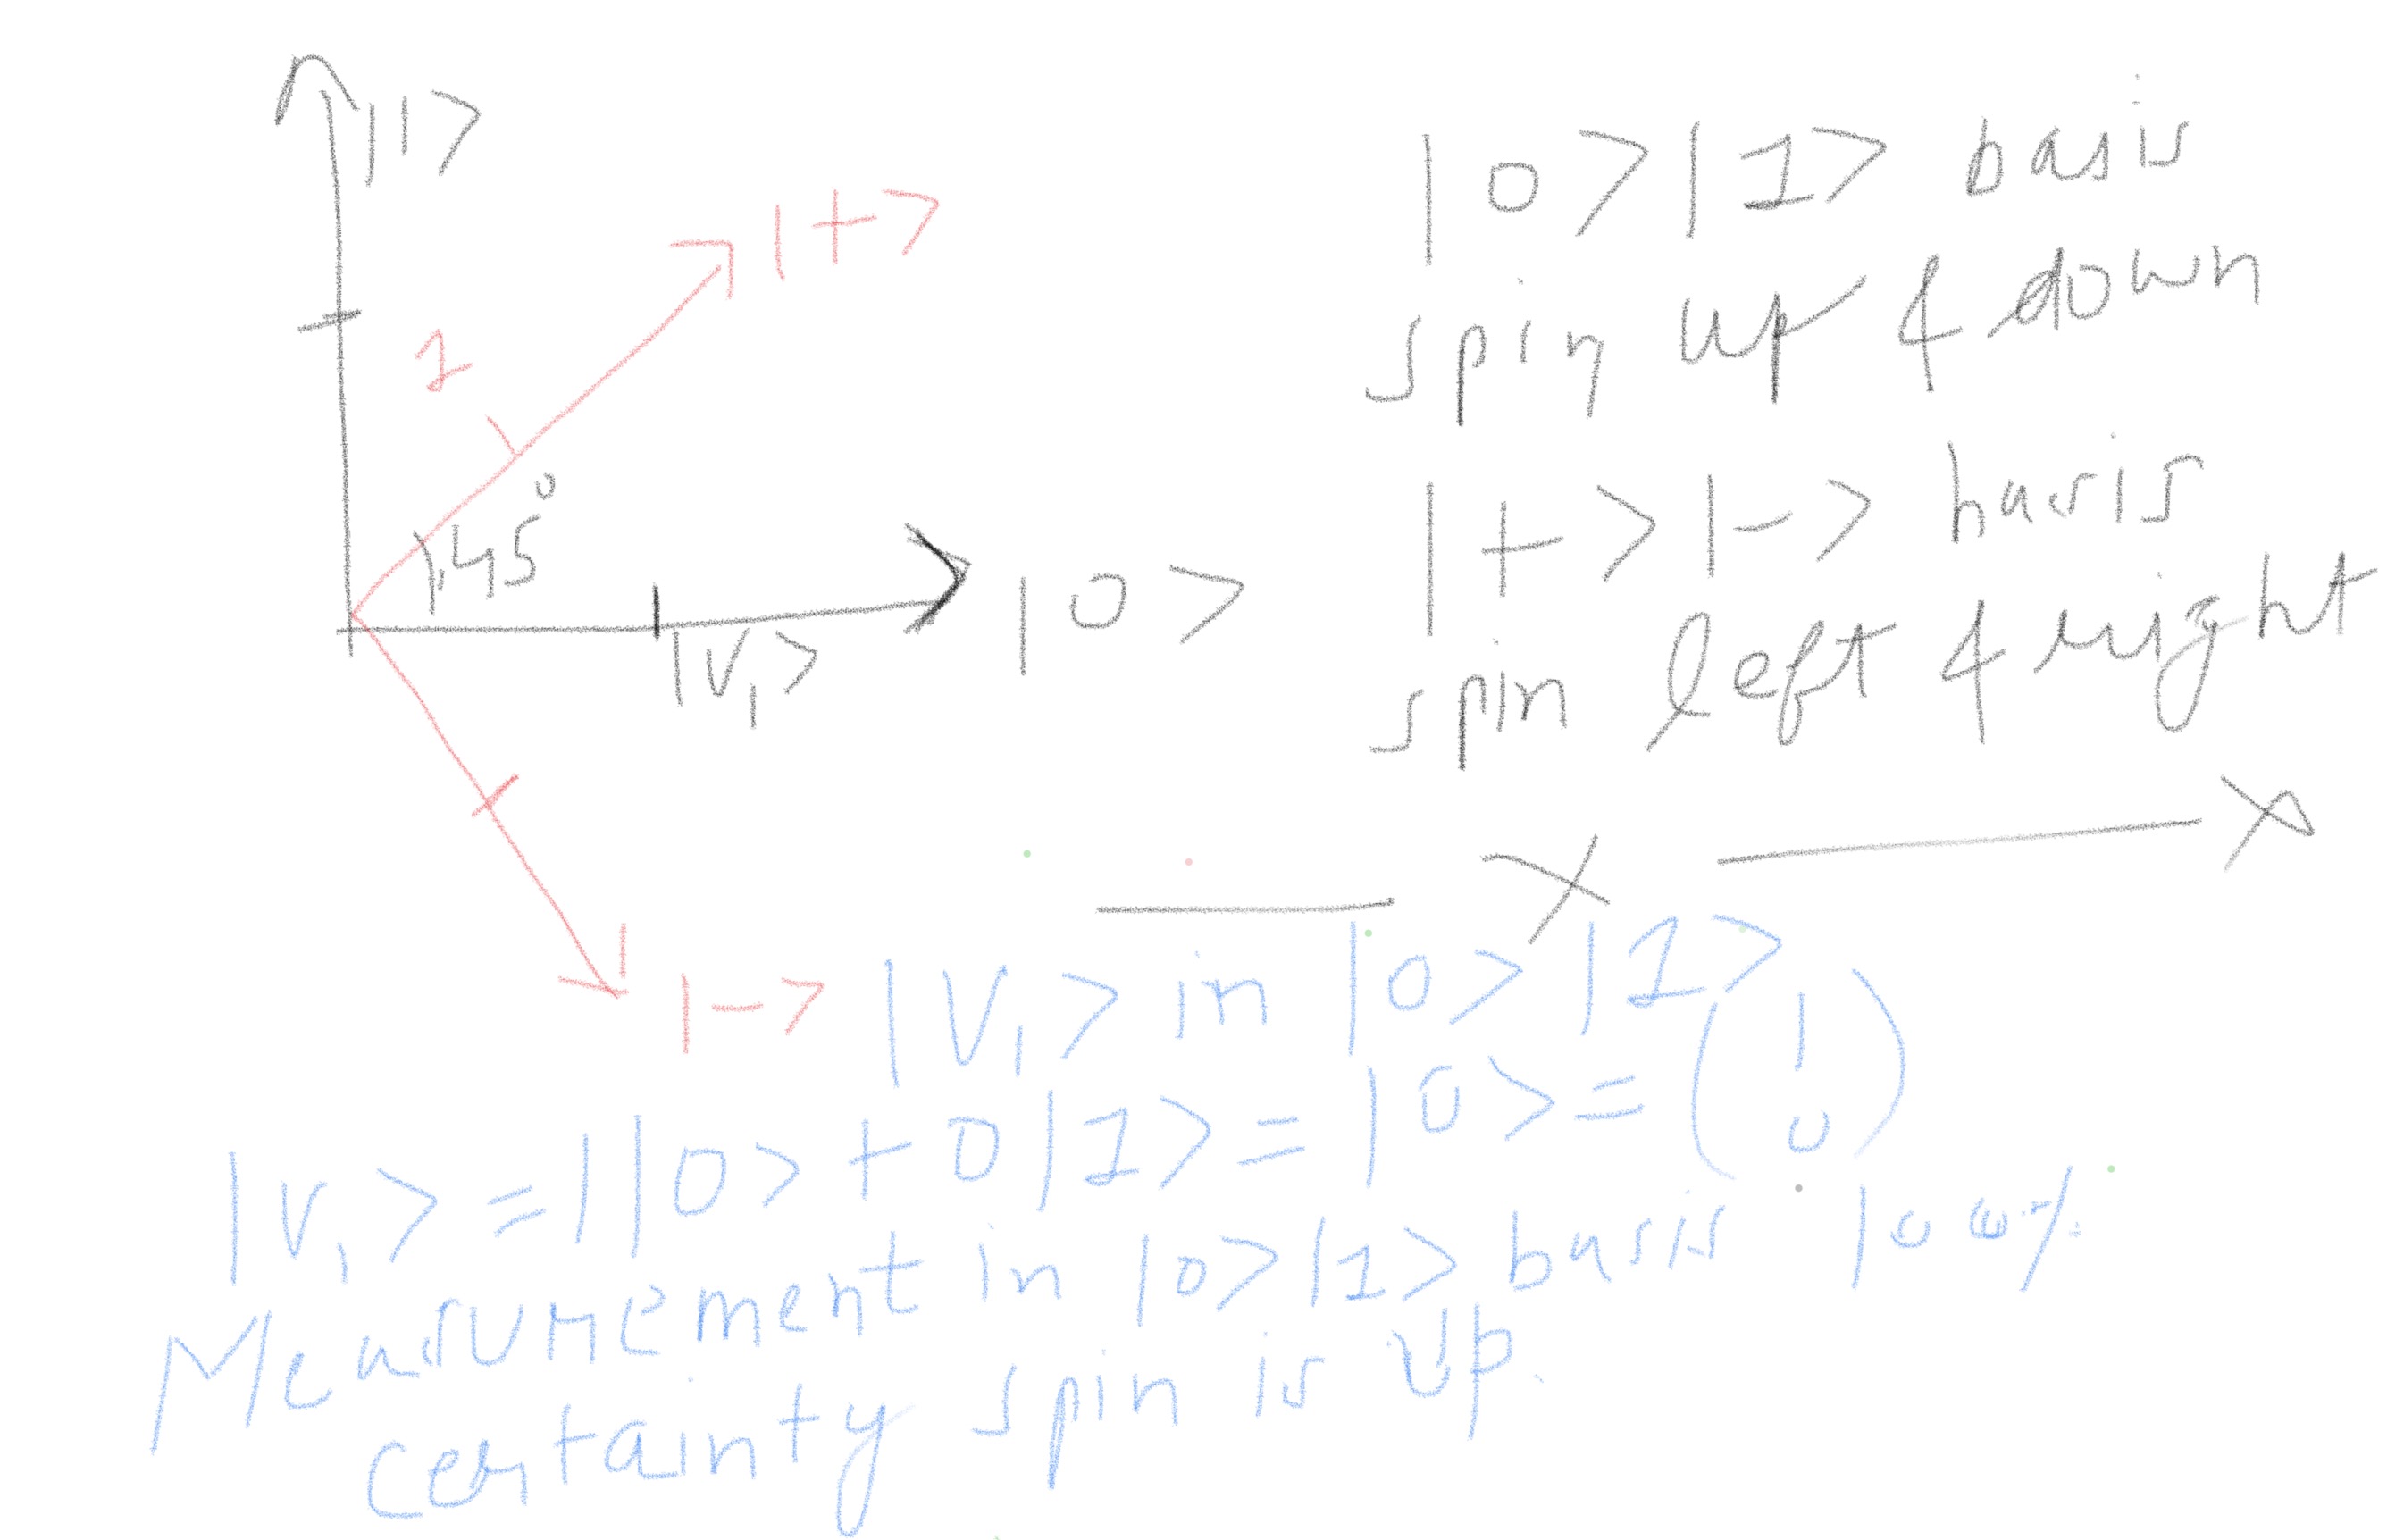 |1>
|+>
1
45°
|0>
|V₁>
|->
|0>|1> basis
spin up & down
|+>|-> basis
spin left & right
|V₁> in |0>|1>
|V₁> = 1|0> + 0|1> = |0> = (1 0)
Measurement in |0>|1> basis 100%
certainty spin is up.